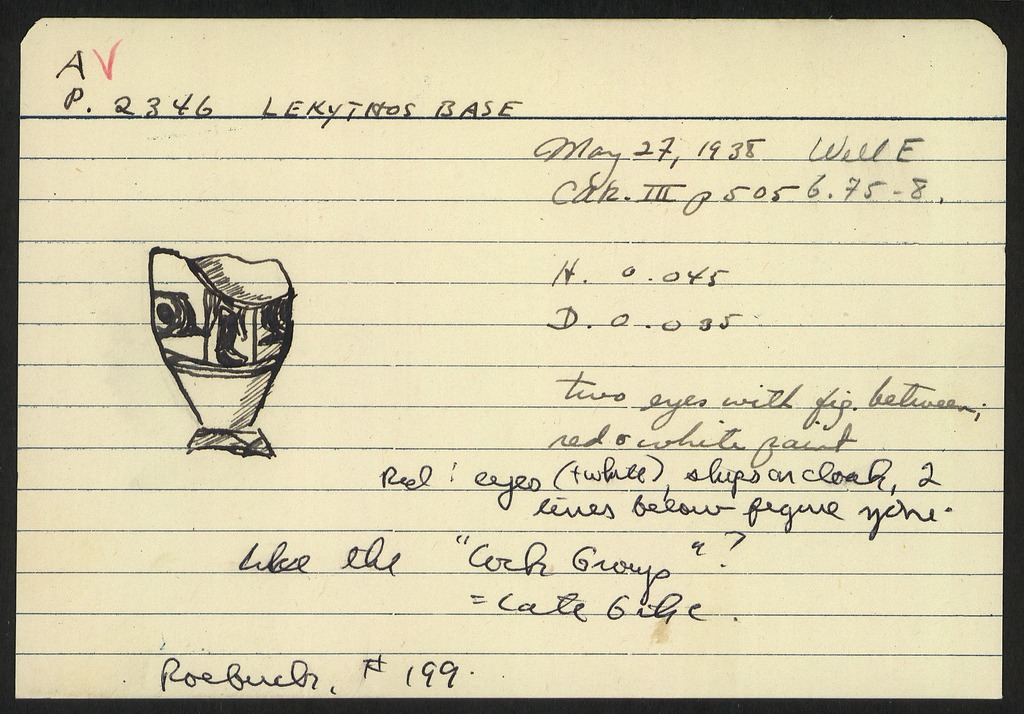 A V
P. 2346 LEKYTHOS BASE
May 27, 1938 Well E
CAR. III p 505 6.75-8.
H. 0.045
D. 0.035
two eyes with fig. between;
red & white paint
Red: eyes (+white), strips on cloak, 2
lines below figure zone.
Like the "Cock Group"?
= Late 6th c.
Roebuck, # 199.